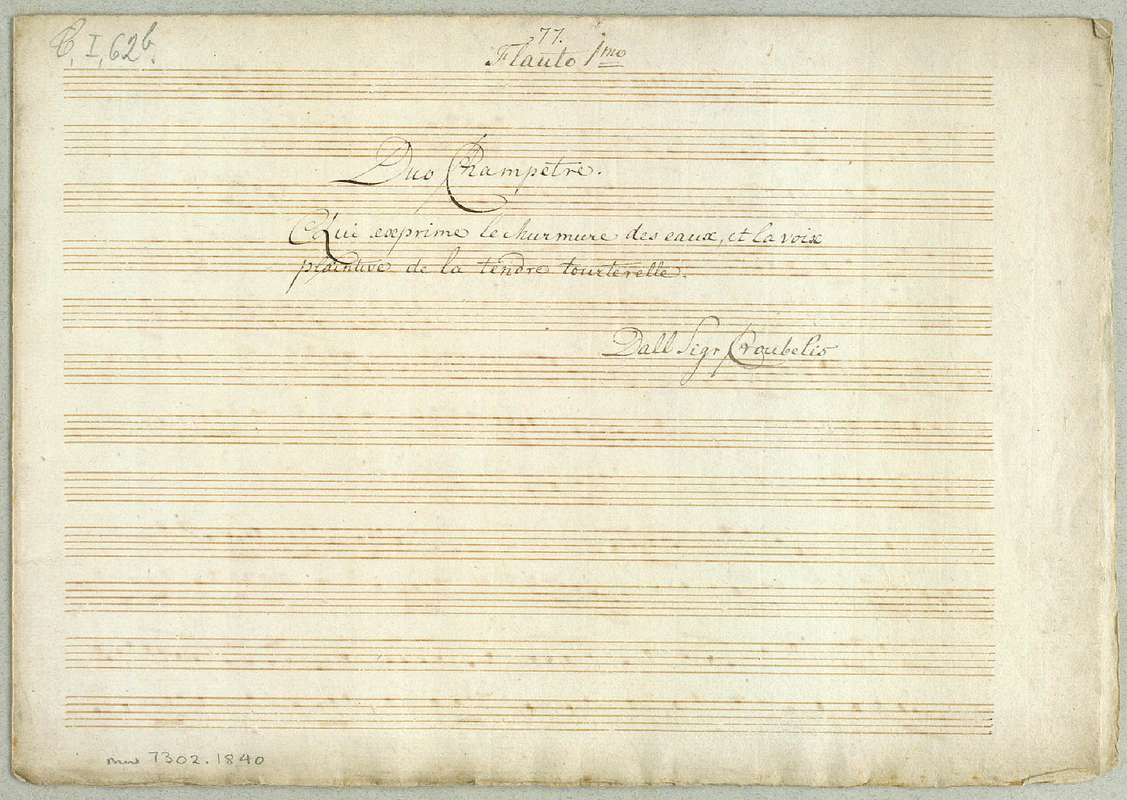 C, I, 62b.
77.
Flauto 1mo
Duo Champetre.
Qui exprime le murmure des eaux, et la voix
plaintive de la tendre tourterelle.
Dall Sigr Croubelis
mu 7302.1840